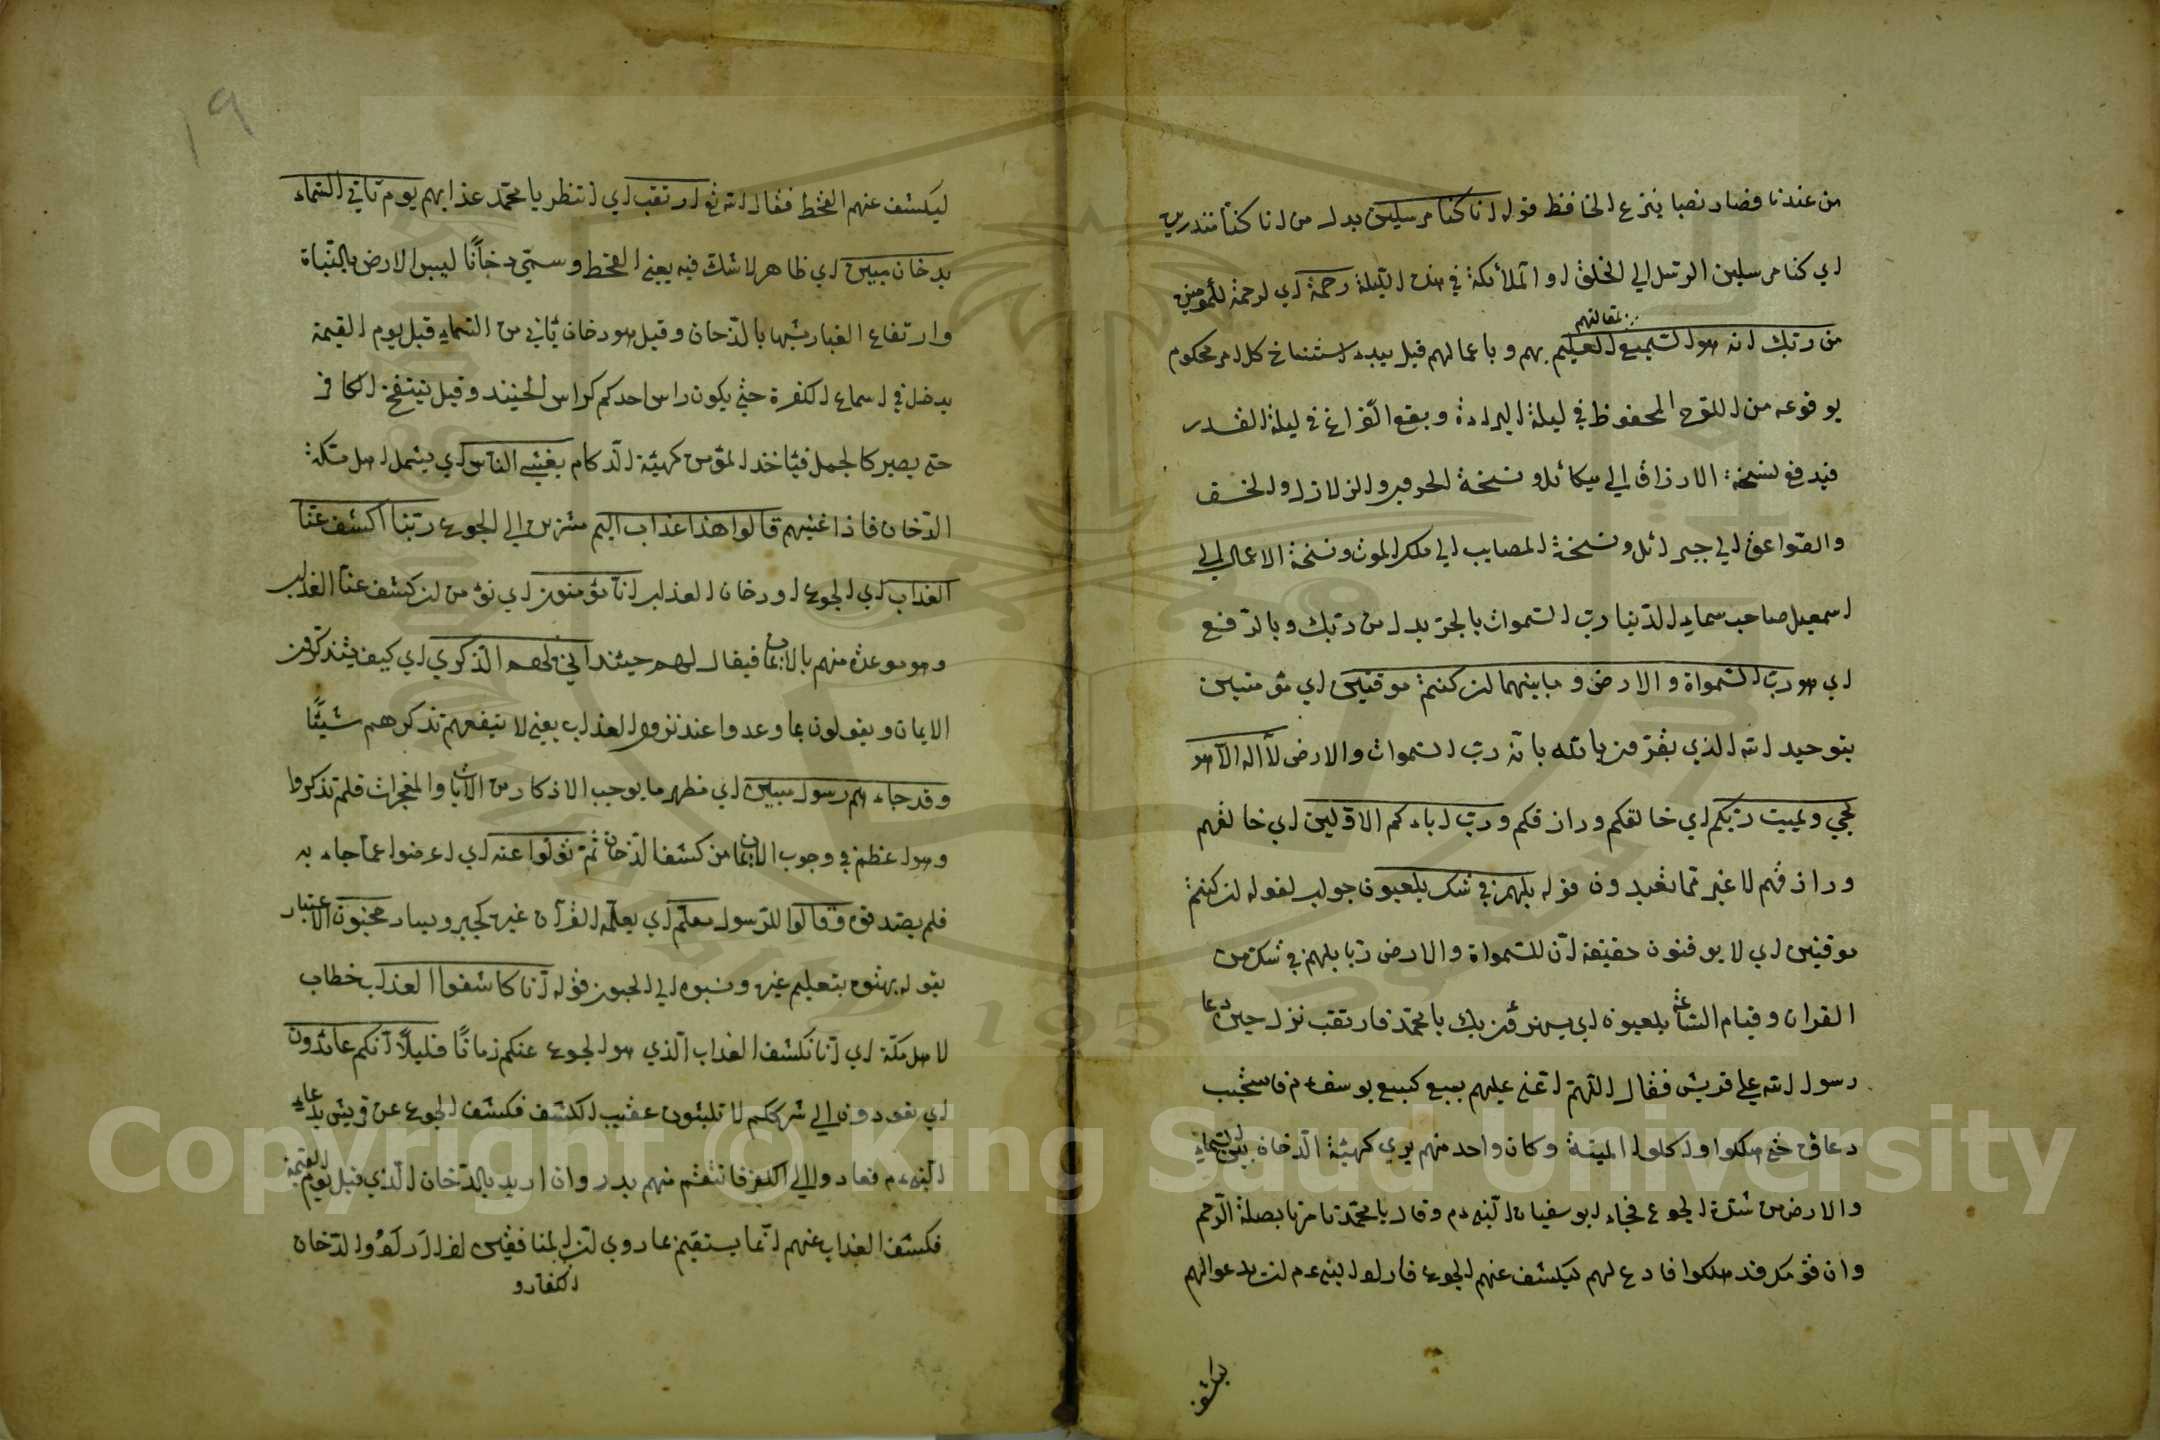 من عندنا فصار نصبا بنزع الخافظ قوله انا كنا مرسلين بدل من انا كنا منذرين
اي كنا مرسلين الرسل الي الخلق او الملائكة في هذه الليلة رحمة اي لرحمة للمؤمنين
من ربك انه هو السميع لمقالتهم العليم بهم وباعمالهم قيل يبدء استنساخ كل امر محكوم
بوقوعه من اللوح المحفوظ في ليلة البراءة ويقع الفراغ في ليلة القدر
فيدفع نسخة الارزاق الي ميكائل ونسخة الحروب والزلازل والخسف
والصواعق الي جبرائل ونسخة المصايب الي ملك الموت ونسخة الاعمال الي
اسمعيل صاحب سماء الدنيا رب السموات بالجر بدل من ربك وبالرفع
اي هو رب السمواة والارض وما بينهما ان كنتم موقنين اي مؤمنين
بتوحيد الله الذي بانه رب السموات والارض لا اله الا هو
يحيي ويميت ربكم اي خالقكم ورازقكم ورب اباءكم الاولين اي خالقهم
ورازقهم لا غير مما تعبدون قوله بل هم في شك يلعبون جواب لقوله ان كنتم
موقنين اي لا يوقنون حقيقة ان للسمواة والارض ربا بل هم في شك من
القران وقيام الساعة يلعبون اي يستهزؤن بك يا محمد فارتقب نزل حين دعا
رسول الله علي قريش فقال اللهم اعني عليهم بسبع كسبع يوسف عم فاستجيب
دعاؤه حتي هلكوا واكلوا الميتة وكان واحد منهم يري كهيئة الدخان بين السماء
والارض من شدة الجوع فجاء ابو سفيان النبي عم وقال يا محمد تامرنا بصلة الرحم
وان قومك قد هلكوا فادع لهم ليكشف عنهم الجوع النبي عم ان يدعوا لهم
ليكشف
١٩
ليكشف عنهم القحط فقال الله تع ارتقب اي انتظر يا محمد عذابهم يوم تاتي السماء
بدخان مبين اي ظاهر لا شك فيه يعني القحط وسمي دخانا ليبس الارض بالنباة
وارتفاع الغبار شبها بالدخان وقيل هو دخان ياتي من السماء قبل يوم القيمة
يدخل في اسماع الكفرة حتي يكون راس احدكم كراس الحنيذ وقيل ينتفخ الكافر
حتي يصير كالجمل فيأخذ المؤمن كهيئة الزكام يغشي الناس اي يشمل اهل مكة
الدخان فاذا غشيهم قالوا هذا عذاب اليم الي الجوع ربنا اكشف عنا
العذاب اي الجوع او دخان العذاب انا مؤمنون اي نؤمن ان كشف عنا العذاب
وهو موعدة منهم بالايمان فيقال لهم حينئذ اني لهم الذكري اي كيف يتذكرون
الايمان ويقولون بما وعدوا عند نزول العذاب يعني لا ينفعهم تذكرهم شيئا
وقد جاءهم رسول مبين اي مظهر ما يوجب الاذكار من الايات والمعجزات فلم تذكروا
وهو اعظم في وجوب الايمان من كشف الدخان ثم تولوا عنه اي اعرضوا عما جاء به
فلم يصدقوه وقالوا للرسول معلم اي يعلمه القرآن غيره كجبر ويسار مجنون
بقوله بهتوه بتعليم غيره ونسبوه الي الجنون قوله انا كاشفوا العذاب خطاب
لاهل مكة اي انا نكشف العذاب الذي هو الجوع عنكم زمانا قليلا انكم عائدون
اي تعودون الي شرككم لا تلبثون عقيب الكشف فكشف الجوع عن قريش بدعاء
النبي عم فعادوا الي الكفر فانتقم منهم ببدر وان اريد بالدخان الذي قبل يوم القيمة
فكشف العذاب عنهم انما يستقيم بما روي ان المنافقين اذا الدخان
الكفار و